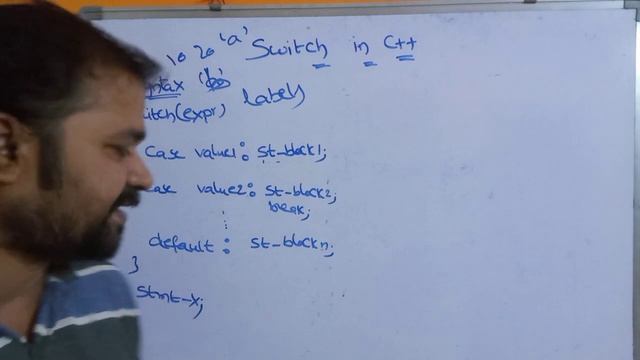 10 20 'a' Switch in C++
ntax
itch(expr) labels
case value1: st-block1;
ase value2: st-block2;
break;
default: st-blockn;
}
stmt-x;